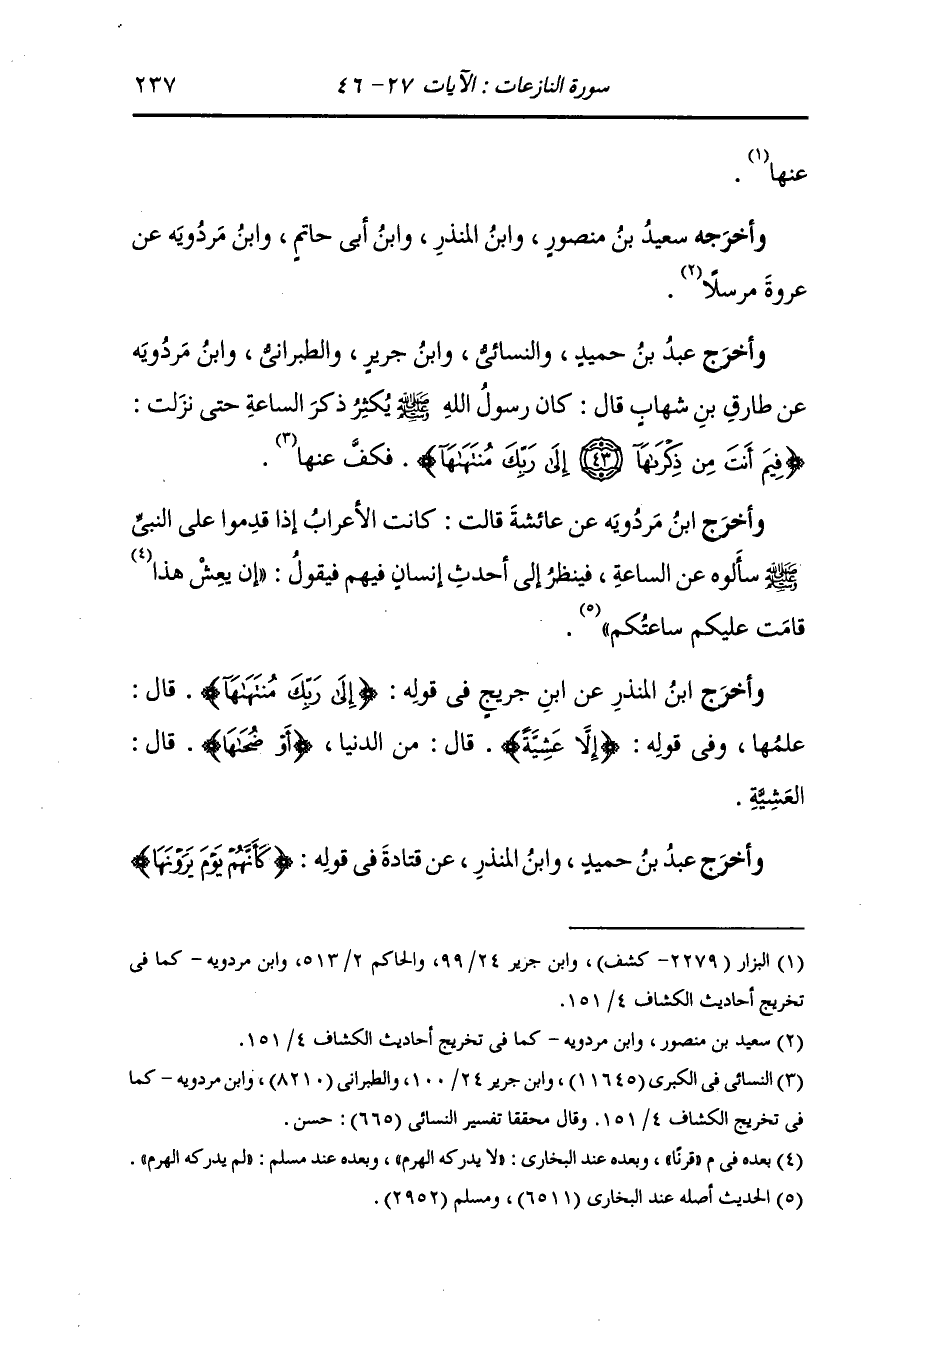 سورة النازعات : الآيات ٢٧ - ٤٦ ٢٣٧
عنها(١) .
وأخرَجه سعيدُ بنُ منصورٍ ، وابنُ المنذرِ ، وابنُ أبى حاتمٍ ، وابنُ مَردُويَه عن
عروةَ مرسلًا(٢) .
وأخرَج عبدُ بنُ حميدٍ ، والنسائىُّ ، وابنُ جريرٍ ، والطبرانىُّ ، وابنُ مَردُويَه
عن طارقِ بنِ شهابٍ قال : كان رسولُ اللهِ ﷺ يُكثِرُ ذكرَ الساعةِ حتى نزَلت :
﴿فِيمَ أَنتَ مِن ذِكْرَىٰهَآ ٤٣ إِلَىٰ رَبِّكَ مُنتَهَىٰهَآ﴾ . فكفَّ عنها(٣) .
وأخرَج ابنُ مَردُويَه عن عائشةَ قالت : كانت الأعرابُ إذا قدِموا على النبىِّ
ﷺ سأَلوه عن الساعةِ ، فينظرُ إلى أحدثِ إنسانٍ فيهم فيقولُ : «إن يعِشْ هذا(٤)
قامَت عليكم ساعتُكم»(٥) .
وأخرَج ابنُ المنذرِ عن ابنِ جريجٍ فى قولِه : ﴿إِلَىٰ رَبِّكَ مُنتَهَىٰهَآ﴾ . قال :
علمُها ، وفى قولِه : ﴿إِلَّا عَشِيَّةً﴾ . قال : من الدنيا ، ﴿أَوْ ضُحَىٰهَا﴾ . قال :
العَشِيَّةِ .
وأخرَج عبدُ بنُ حميدٍ ، وابنُ المنذرِ ، عن قتادةَ فى قولِه : ﴿كَأَنَّهُمْ يَوْمَ يَرَوْنَهَا﴾
(١) البزار (٢٢٧٩ - كشف) ، وابن جرير ٢٤/ ٩٩، والحاكم ٢/ ٥١٣، وابن مردويه - كما فى
تخريج أحاديث الكشاف ٤/ ١٥١.
(٢) سعيد بن منصور ، وابن مردويه - كما فى تخريج أحاديث الكشاف ٤/ ١٥١.
(٣) النسائى فى الكبرى (١١٦٤٥) ، وابن جرير ٢٤/ ١٠٠، والطبرانى (٨٢١٠) ، وابن مردويه - كما
فى تخريج الكشاف ٤/ ١٥١. وقال محققا تفسير النسائى (٦٦٥) : حسن .
(٤) بعده فى م «قرنًا» ، وبعده عند البخارى : «لا يدركه الهرم» ، وبعده عند مسلم : «لم يدركه الهرم» .
(٥) الحديث أصله عند البخارى (٦٥١١) ، ومسلم (٢٩٥٢) .